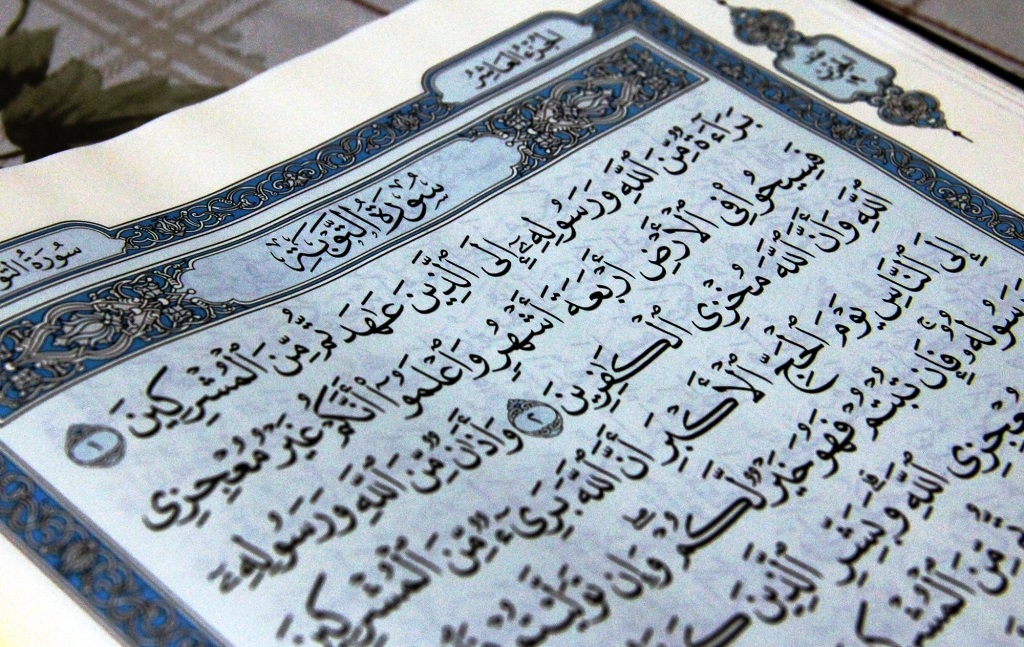 الجزء العاشر
سورة التوبة
بَرَآءَةٌ مِّنَ ٱللَّهِ وَرَسُولِهِۦٓ إِلَى ٱلَّذِينَ عَٰهَدتُّم مِّنَ ٱلْمُشْرِكِينَ ١
فَسِيحُوا۟ فِى ٱلْأَرْضِ أَرْبَعَةَ أَشْهُرٍ وَٱعْلَمُوٓا۟ أَنَّكُمْ غَيْرُ مُعْجِزِى
ٱللَّهِ وَأَنَّ ٱللَّهَ مُخْزِى ٱلْكَٰفِرِينَ ٢ وَأَذَٰنٌ مِّنَ ٱللَّهِ وَرَسُولِهِۦٓ
إِلَى ٱلنَّاسِ يَوْمَ ٱلْحَجِّ ٱلْأَكْبَرِ أَنَّ ٱللَّهَ بَرِىٓءٌ مِّنَ ٱلْمُشْرِكِينَ
وَرَسُولُهُۥ فَإِن تُبْتُمْ فَهُوَ خَيْرٌ لَّكُمْ وَإِن تَوَلَّيْتُمْ
مُعْجِزِى ٱللَّهِ وَبَشِّرِ ٱلَّذِينَ
مِّنَ ٱلْمُشْرِكِينَ